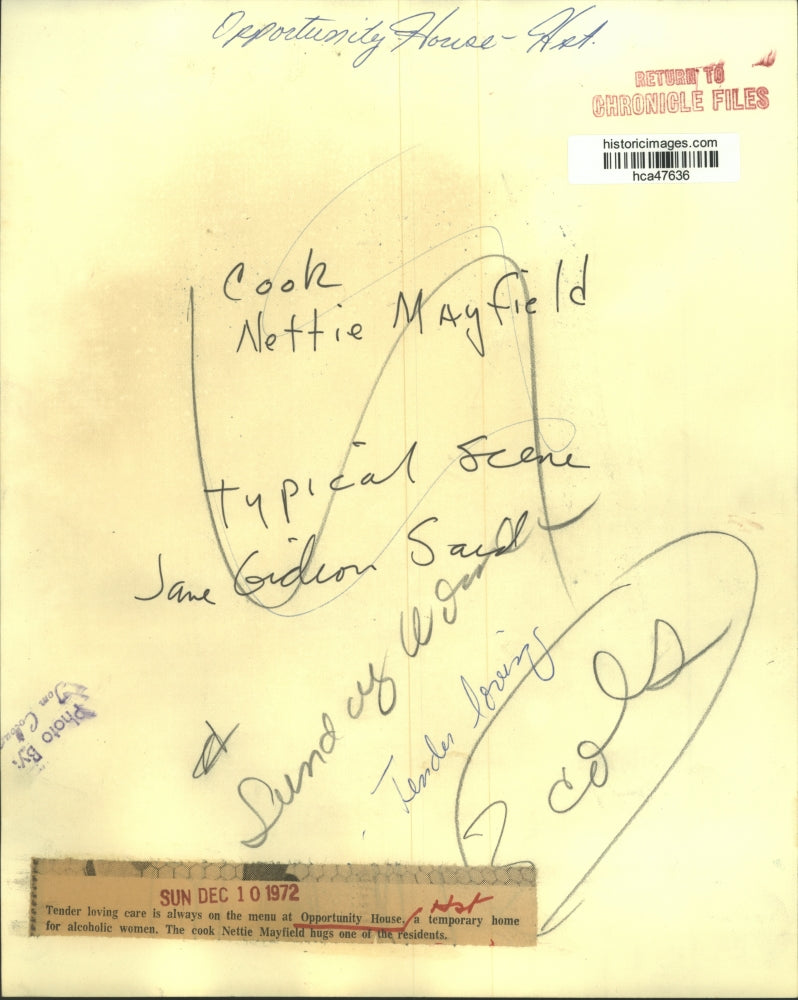 Opportunity House - Hst.
RETURN TO
CHRONICLE FILES
historicimages.com
hca47636
Cook
Nettie Mayfield
typical scene
Jane Gideon Said
Sunday
Tender loving
2 cols
Photo By:
Tom
SUN DEC 10 1972
Hst
Tender loving care is always on the menu at Opportunity House, a temporary home
for alcoholic women. The cook Nettie Mayfield hugs one of the residents.